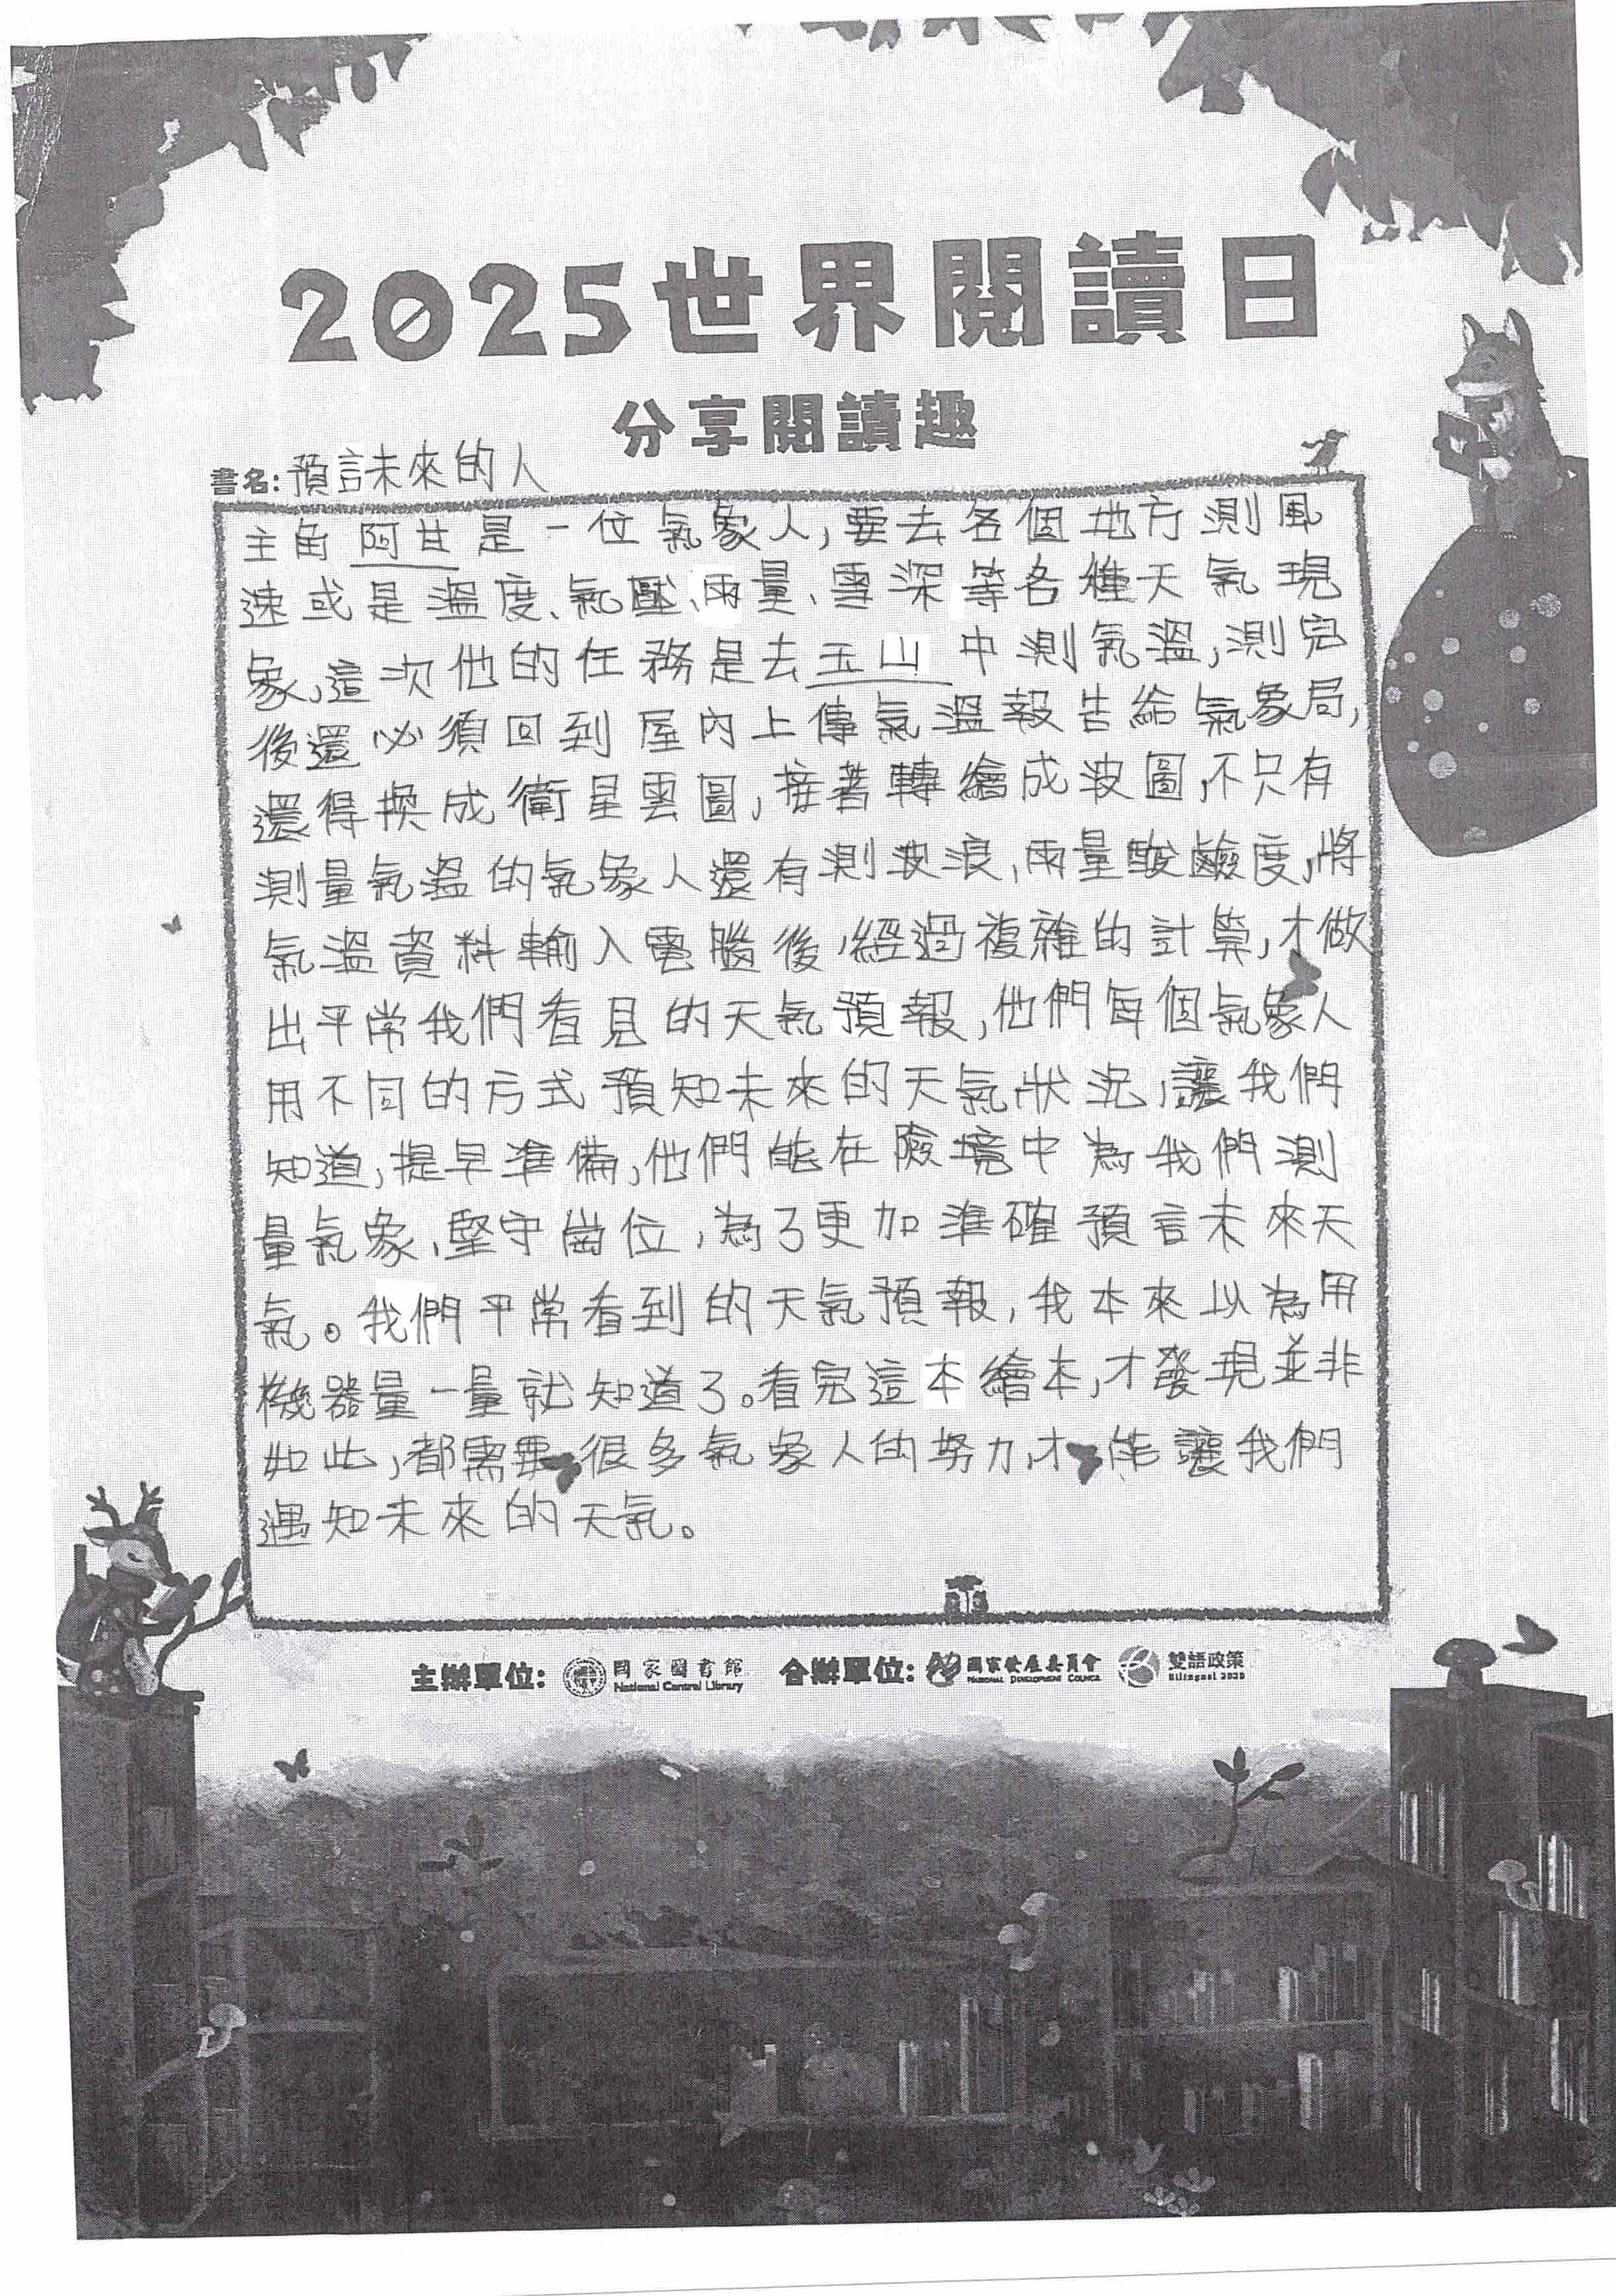 2025世界閱讀日
分享閱讀趣
書名:預言未來的人
主角阿甘是一位氣象人,要去各個地方測風
速或是溫度、氣壓、雨量、雪深等各種天氣現
象,這次他的任務是去玉山中測氣溫,測完
後還必須回到屋內上傳氣溫報告給氣象局,
還得換成衛星雲圖,接著轉繪成波圖,不只有
測量氣溫的氣象人還有測波浪,雨量酸鹼度,將
氣溫資料輸入電腦後,經過複雜的計算,才做
出平常我們看見的天氣預報,他們每個氣象人
用不同的方式預知未來的天氣狀況,讓我們
知道,提早準備,他們能在險境中為我們測
量氣象,堅守崗位,為了更加準確預言未來天
氣。我們平常看到的天氣預報,我本來以為用
機器量一量就知道了。看完這本繪本,才發現並非
如此,都需要很多氣象人的努力,才能讓我們
遇知未來的天氣。
主辦單位: 國家圖書館 合辦單位: 國家發展委員會 雙語政策
National Central Library NATIONAL DEVELOPMENT COUNCIL Bilingual 2030